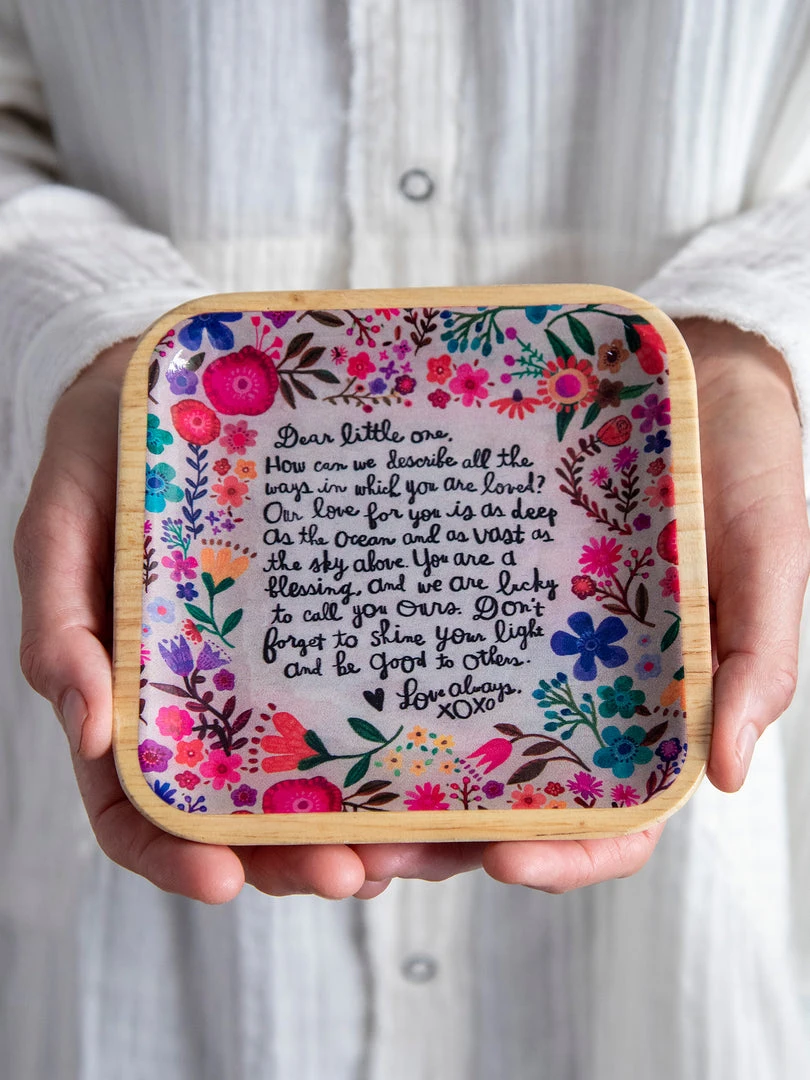 Dear little one,
How can we describe all the
ways in which you are loved?
Our love for you is as deep
as the ocean and as vast as
the sky above. You are a
blessing, and we are lucky
to call you ours. Don't
forget to shine your light
and be good to others.
Love always,
XOXO